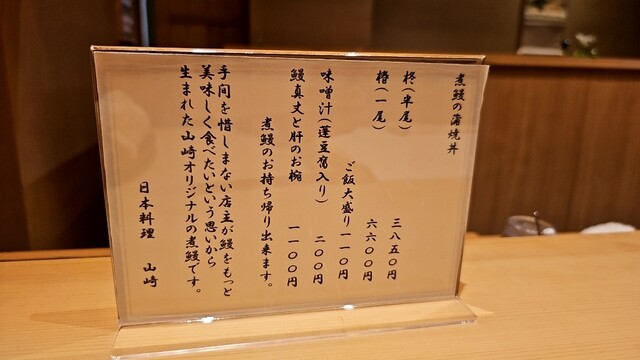 煮鰻の蒲焼丼
柊（半尾） 三八五〇円
椿（一尾） 六六〇〇円
ご飯大盛り 一一〇円
味噌汁（蓮豆腐入り） 二〇〇円
鰻真丈と肝のお椀 一一〇〇円
煮鰻のお持ち帰り出来ます。
手間を惜しまない店主が鰻をもっと
美味しく食べたいという思いから
生まれた山崎オリジナルの煮鰻です。
日本料理 山崎